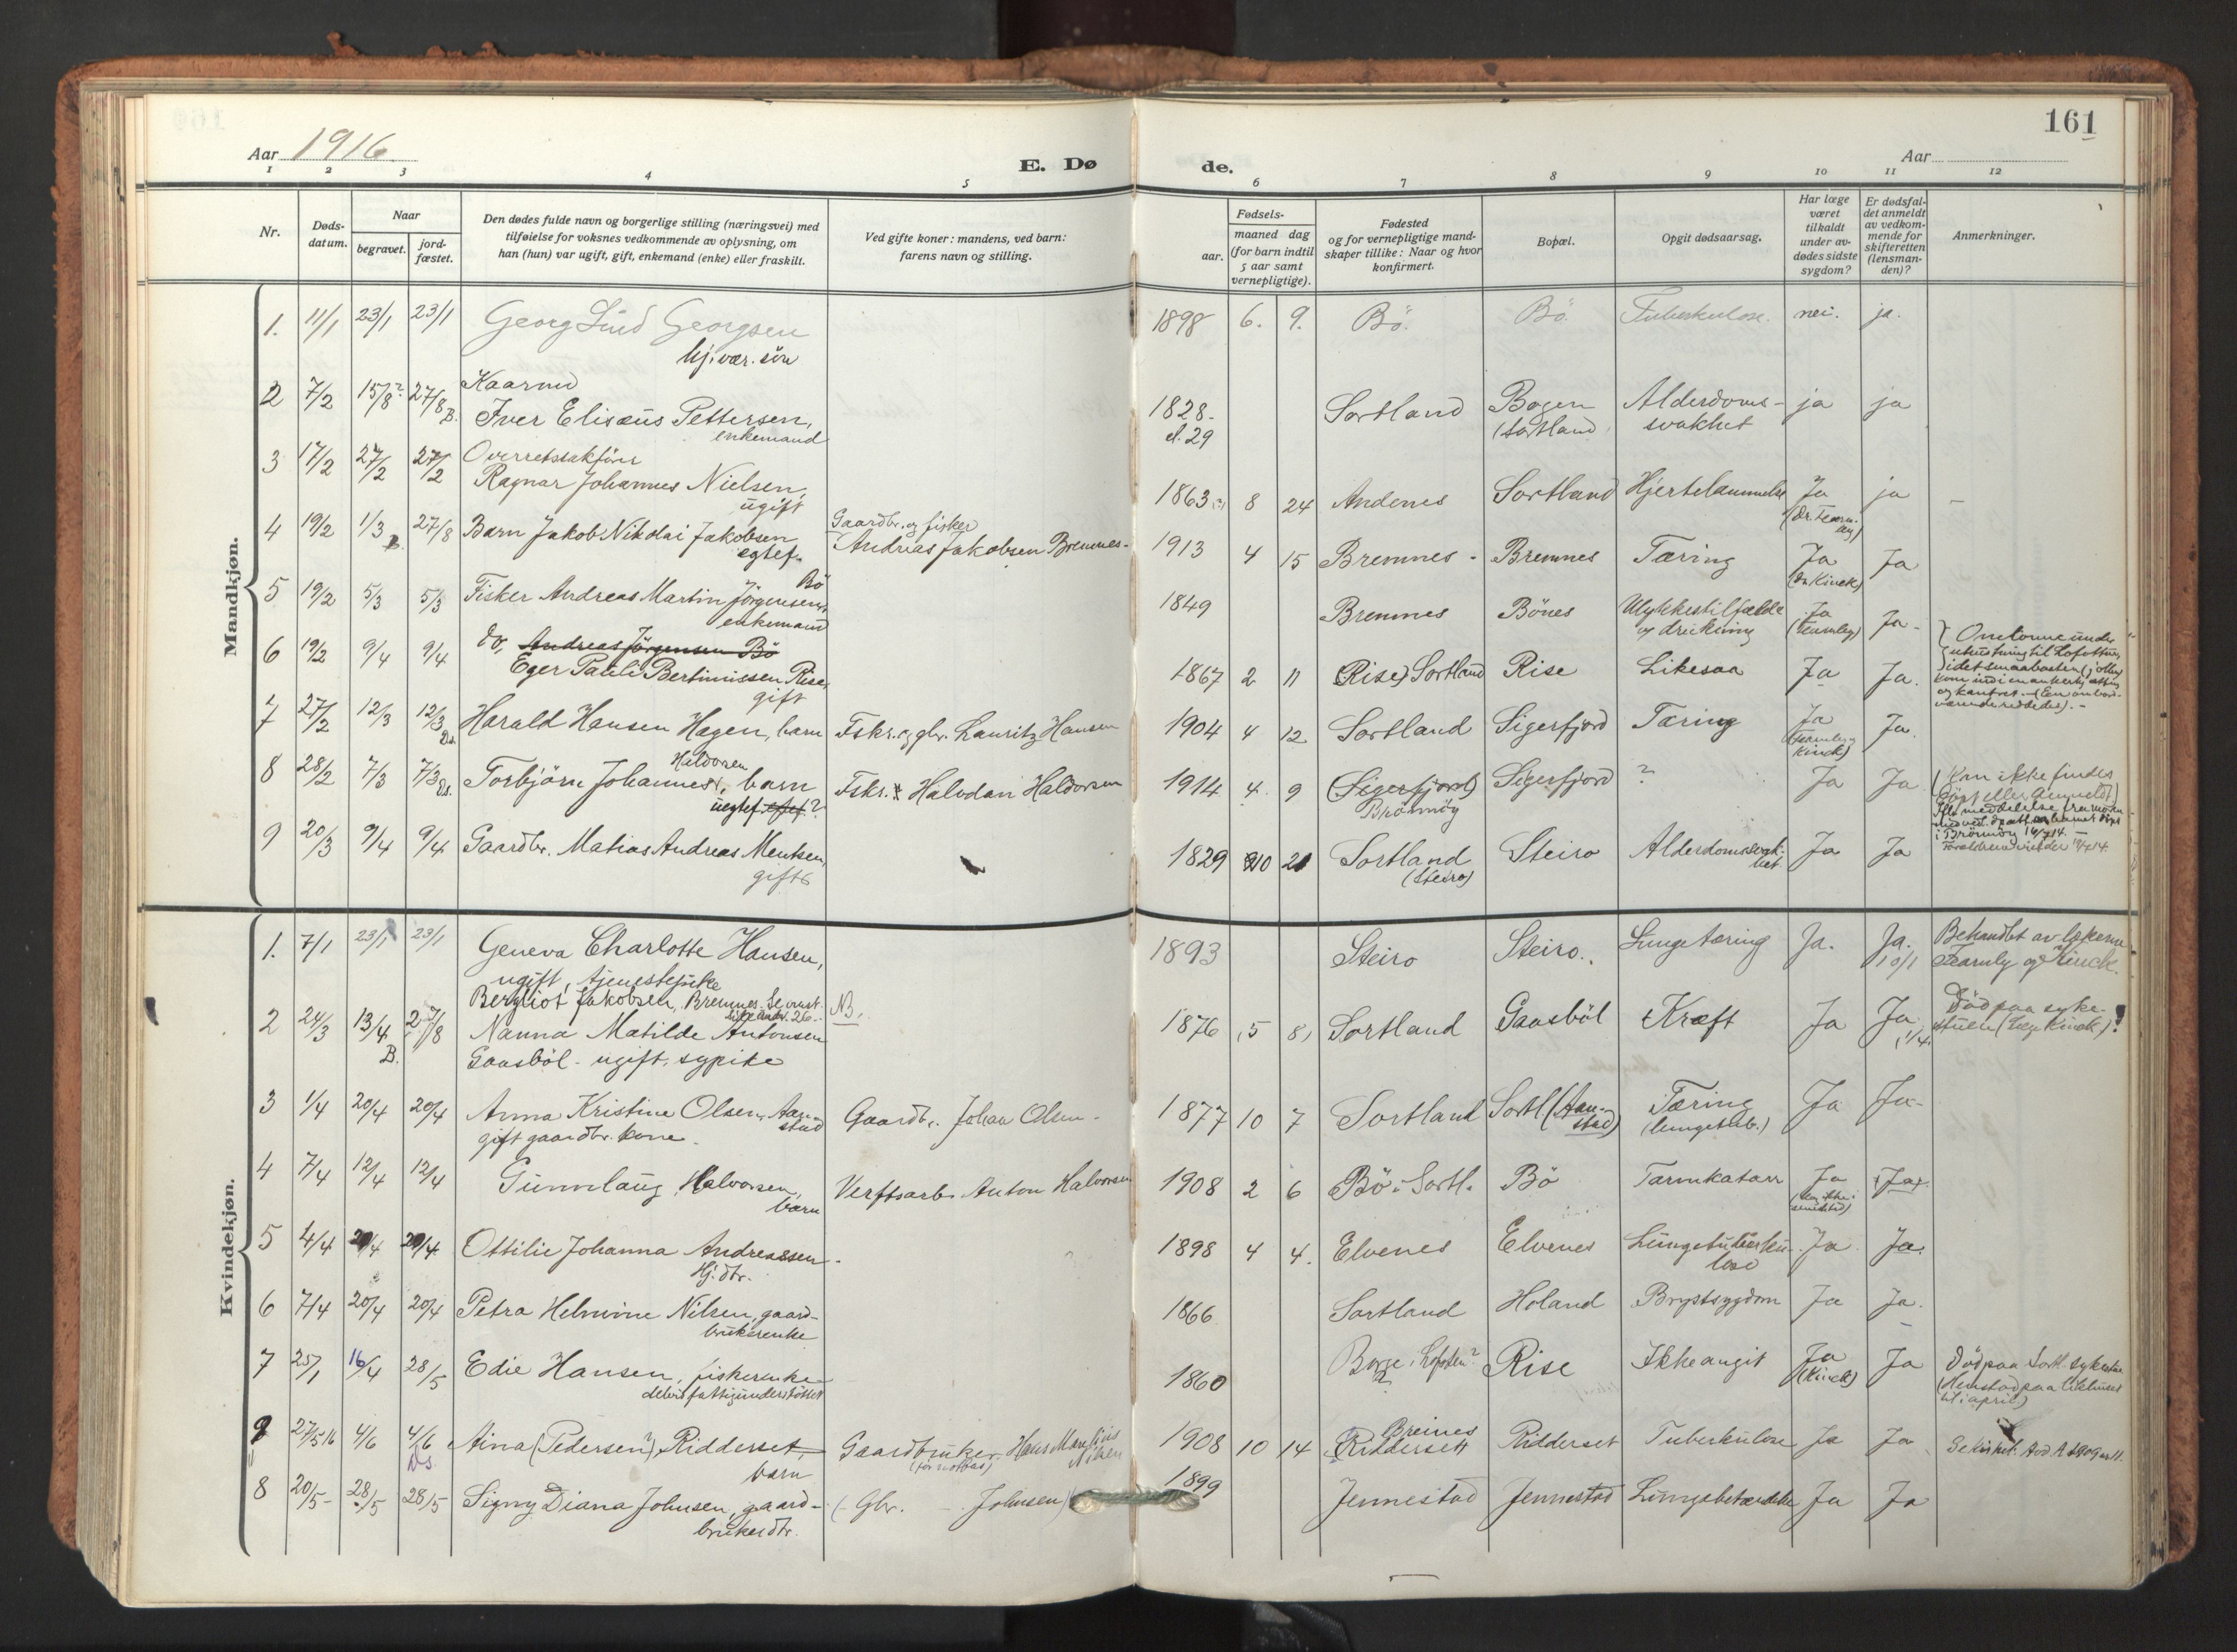 161
Aar 1916
E. Dø
de.
Aar
1 2 3 4 5 6 7 8 9 10 11 12
Nr.
Døds-
datum.
Naar
begravet.
jord-
fæstet.
Den dødes fulde navn og borgerlige stilling (næringsvei) med
tilføielse for voksnes vedkommende av oplysning, om
han (hun) var ugift, gift, enkemand (enke) eller fraskilt.
Ved gifte koner: mandens, ved barn:
farens navn og stilling.
Fødsels-
aar.
maaned dag
(for barn indtil
5 aar samt
vernepligtige).
Fødested
og for vernepligtige mand-
skaper tillike: Naar og hvor
konfirmert.
Bopæl.
Opgit dødsaarsag.
Har læge
været
tilkaldt
under av-
dødes sidste
sygdom?
Er dødsfal-
det anmeldt
av vedkom-
mende for
skifteretten
(lensman-
den)?
Anmerkninger.
Mandkjøn.
1. 11/1 23/1 23/1 Georg Lind Georgsen 1898 6. 9. Bö. Bö. Tuberkulose. nei. ja.
hj. vær. sön
2 7/2 15/8? 27/8 B. Kaarmd
Iver Elisæus Pettersen, 1828. Sortland Bogen Alderdoms- ja ja
enkemand el. 29 (Sortland svakhet
3 17/2 27/2 27/2 Overretssakförer
Ragnar Johannes Nielsen, 1863 8 24 Andenes Sortland Hjertelammelse Ja ja
ugift
4 19/2 1/3 27/8 Barn Jakob Nikolai Jakobsen Gaardbr. og fisker
egtef. Andreas Jakobsen Bremnes. 1913 4 15 Bremnes - Bremnes Tæring Ja Ja
(Dr Kinck)
5 19/2 5/3 5/3 Fisker Andreas Martin Jörgensen, Bö 1849 Bremnes Bönes Ulykkestilfælde Ja Ja.
enkemand og drukning (Fearnley)
6 19/2 9/4 9/4 do, Andreas Jörgensen Bö
Eger Pauli Bertinussen Rise, 1867 2 11 (Rise) Sortland Rise Likesaa Ja Ja.
gift
Omkomne under
utrustning til Lofotturen,
7 27/2 12/3 12/3 Ds. Harald Hansen Hagen, barn Fskr. og gbr. Lauritz Hansen 1904 4 12 Sortland Sigerfjord Tæring Ja Ja.
(Fearnley
Kinck)
8 28/2 7/3 7/3 Ds. Torbjörn Johannes Haldorsen, barn Fskr. Halvdan Haldorsen 1914 4. 9 (Sigerfjord) Sigerfjord ? Ja Ja.
uegtef. egtef.? Brönnöy
Kan ikke findes
9 20/3 9/4 9/4 Gaardbr. Matias Andreas Mentsen, 1829 10 21 Sortland Steiro Alderdomssvak- Ja Ja
gift (Steiro) het.
Kvindekjøn.
1. 7/1 23/1 23/1 Geneva Charlotte Hansen, 1893 Steiro Steiro. Lungetæring Ja. Ja. Behandlet av lægerne
ugift, tjenestepike 10/1 Fearnly og Kinck.
Bergliot Jakobsen, Bremnes. NB.
2 24/3 13/4 B. 27/8 Nanna Matilde Antonsen 1876 5 8 Sortland Gaasböl Kræft Ja Ja 1/4. Död paa syke-
Gaasböl - ugift, sypike stuen (Læge Kinck)!
3 1/4 20/4 20/4 Anna Kristine Olsen, Aan- Gaardbr. Johan Olsen - 1877 10 7 Sortland Sortl. (Aan- Tæring Ja Ja-
gift gaardbr. kone. stad stad) (lungetub.)
4 7/4 12/4 12/4 Gunnlaug Halvorsen, Verftsarb. Anton Halvorsen 1908 2 6 Bö i Sortl. Bö Tarmkatarr Ja Ja.
barn
5 4/4 20/4 20/4 Ottilie Johanna Andreassen. 1898 4 4. Elvenes Elvenes Lungetuberku- Ja Ja.
Hj. dtr. lose
6 7/4 20/4 20/4 Petra Helmine Nilsen, gaard- 1866 Sortland Holand Brystsygdom Ja Ja.
brukerenke
7 25/1 16/4 28/5 Edie Hansen, fiskerenke 1860 Borge i Lofoten? Rise Ikke angit Ja Ja Död paa Sortl. sykestue
delvis fattigunderstöttet (Kinck) (Henstod paa likhuset
til i april)
9 27/5 16 4/6 4/6 Ds Aina (Pedersen?) Ridderset, Gaardbruker Hans Mangnus Nilsen 1908 10 14 Breines Riddersett Ridderset Tuberkulose Ja Ja
barn
8 20/5 28/5 28/5 Signy Diana Johnsen, gaard- (- Gbr. - Johnsen) 1899 Jennestad Jennestad Lungebetændelse Ja Ja
brukerdtr.